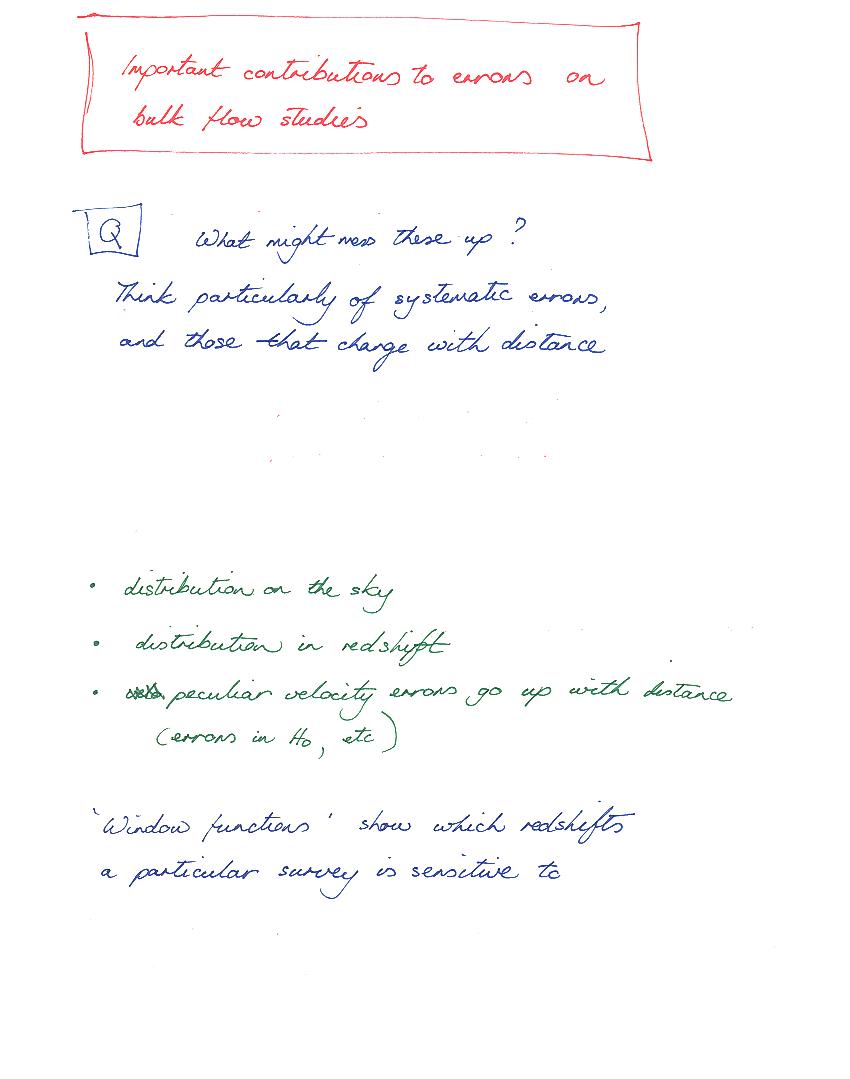 Important contributions to errors on
bulk flow studies
Q What might mess these up ?
Think particularly of systematic errors,
and those that change with distance
• distribution on the sky
• distribution in redshift
• peculiar velocity errors go up with distance
(errors in H0, etc)
'Window functions' show which redshifts
a particular survey is sensitive to